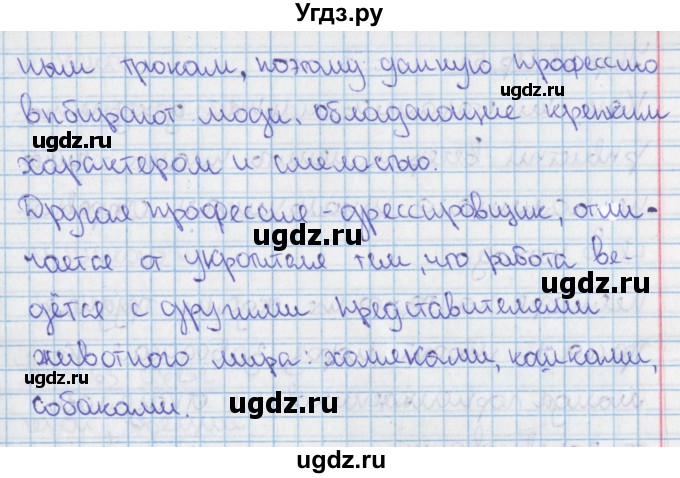 Угдз.ру
ным трюкам, поэтому данную профессию
выбирают люди, обладающие крепким
ugdz.ru
ugdz.ru
ugdz.ru
характером и смелостью.
Другая профессия - дрессировщик, отли-
ugdz.ru
чается от укротителя тем, что работа ве-
дётся с другими представителями
ugdz.ru
животного мира: хомяками, кошками,
ugdz.ru
собаками.
ugdz.ru
ugdz.ru
ugdz.ru